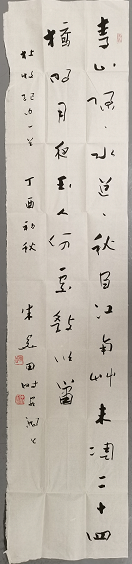 青山隱々水迢々秋盡江南艸未凋二十四
橋明月夜玉人何處教吹簫
杜牧 一首 丁酉初秋